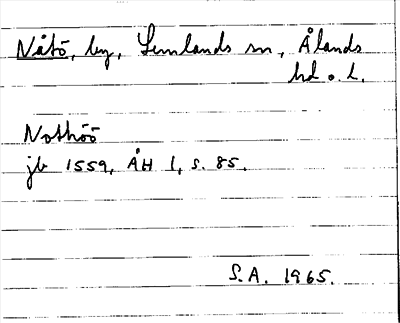 Nåtö, by, Lemlands sn, Ålands
hd o. l.
Nothöö
jb 1559, ÅH 1, s. 85.
S.A. 1965.